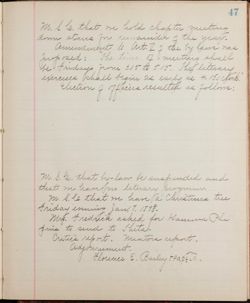 47
M. S. C. that we hold chapter meetings
down stairs for remainder of the year.
Amendment to Art. I of the by laws was
proposed: The time of meetings shall
be Fridays from 3:15 to 5:15. The literary
exercises shall begin as early as 4 o'clock.
Election of officers resulted as follows:
M. S. C. that by-law be suspended and
that we have no literary program
M. S. C. that we have a Christmas tree
Friday evening Jan 7, 1898.
Fredrick asked for Hannum
to send to
Critics report. Mentors report.
Adjournment.
Florence E.